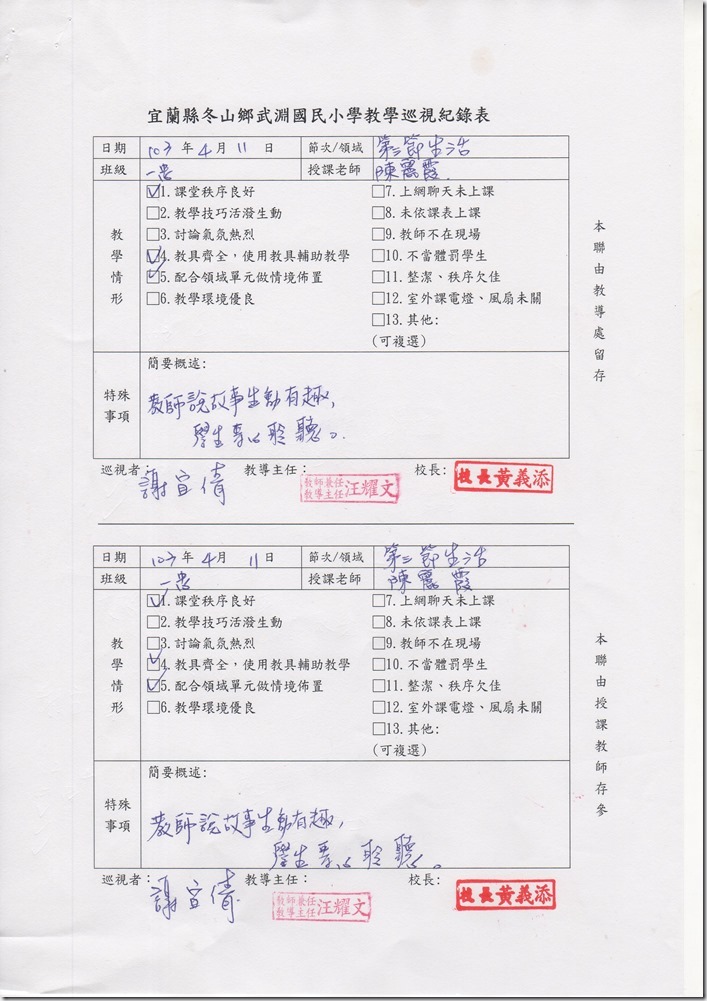 宜蘭縣冬山鄉武淵國民小學教學巡視紀錄表
日期 103 年 4 月 11 日 節次/領域 第三節生活
班級 一忠 授課老師 陳麗霞
教學情形
☑1.課堂秩序良好 □7.上網聊天未上課
□2.教學技巧活潑生動 □8.未依課表上課
□3.討論氣氛熱烈 □9.教師不在現場
☑4.教具齊全，使用教具輔助教學 □10.不當體罰學生
☑5.配合領域單元做情境佈置 □11.整潔、秩序欠佳
□6.教學環境優良 □12.室外課電燈、風扇未關
□13.其他:
(可複選)
特殊事項
簡要概述:
教師說故事生動有趣，
學生專心聆聽。
巡視者： 謝宜倩 教導主任： 教師兼任教導主任汪耀文 校長: 校長黃義添
本聯由教導處留存
日期 103 年 4 月 11 日 節次/領域 第三節生活
班級 一忠 授課老師 陳麗霞
教學情形
☑1.課堂秩序良好 □7.上網聊天未上課
□2.教學技巧活潑生動 □8.未依課表上課
□3.討論氣氛熱烈 □9.教師不在現場
☑4.教具齊全，使用教具輔助教學 □10.不當體罰學生
☑5.配合領域單元做情境佈置 □11.整潔、秩序欠佳
□6.教學環境優良 □12.室外課電燈、風扇未關
□13.其他:
(可複選)
特殊事項
簡要概述:
教師說故事生動有趣，
學生專心聆聽。
巡視者： 謝宜倩 教導主任： 教師兼任教導主任汪耀文 校長: 校長黃義添
本聯由授課教師存參